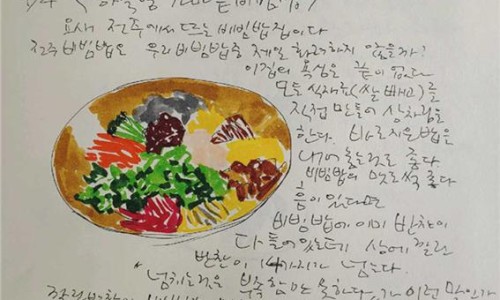 요새 전주에서 뜨는 비빔밥집이다
전주비빔밥은 우리 비빔밥중 제일 화려하지 않을까?
이집의 욕심은 끝이 없다
모든 식재료(쌀 빼고)를
직접 만들어 상차림을
한다. 바로지은 밥은
내어 놓는것도 좋다
비빔밥의 맛도 썩 좋다
흠이 있다면
비빔밥에 이미 반찬이
다 들어있는데 상에 깔린
반찬이 14가지가 넘는다.
넘치는것은 부족함만 못하다